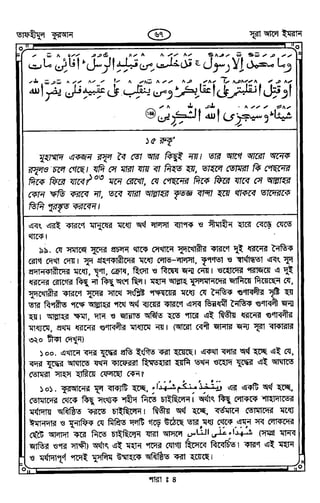 তাফহীমুল কুরআন
৬৭
সূরা আলে ইমরান
وَمَا مُحَمَّدٌ إِلَّا رَسُولٌ ۚ قَدْ خَلَتْ مِنْ قَبْلِهِ الرُّسُلُ ۚ أَفَائِنْ مَاتَ
أَوْ قُتِلَ انْقَلَبْتُمْ عَلَىٰ أَعْقَابِكُمْ ۚ وَمَنْ يَنْقَلِبْ عَلَىٰ عَقِبَيْهِ فَلَنْ يَضُرَّ اللَّهَ
شَيْئًا ۗ وَسَيَجْزِي اللَّهُ الشَّاكِرِينَ
১৫ রুকূ'
মুহাম্মাদ একজন রসূল বৈ তো আর কিছুই নয়। তার আগে আরো অনেক
রসূলও চলে গেছে। যদি সে মারা যায় বা নিহত হয়, তাহলে তোমরা কি পেছনের
দিকে ফিরে যাবে?১০৩ মনে রেখো, যে পেছনের দিকে ফিরে যাবে সে আল্লাহর
কোন ক্ষতি করবে না, তবে যারা আল্লাহর কৃতজ্ঞ বান্দা হয়ে থাকবে তাদেরকে
তিনি পুরস্কৃত করবেন।
এবং এরই কারণে মানুষের মধ্যে অর্থ লালসা ব্যাপক ও সীমাহীন হারে বেড়ে যেতে
থাকে।
৯৯. যে সমাজে সূদের প্রচলন থাকে সেখানে সূদখোরীর কারণে দুই ধরনের নৈতিক
রোগ দেখা দেয়। সূদ গ্রহণকারীদের মধ্যে লোভ-লালসা, কৃপণতা ও স্বার্থান্ধতা এবং সূদ
প্রদানকারীদের মধ্যে, ঘৃণা, ক্রোধ, হিংসা ও বিদ্বেষ জন্ম নেয়। ওহোদের পরাজয়ে এ দুই
ধরনের রোগের কিছু না কিছু অংশ ছিল। মহান আল্লাহ মুসলমানদের জানিয়ে দিয়েছেন যে,
সূদখোরীর কারণে সূদের সাথে সংশ্লিষ্ট পক্ষদ্বয়ের মধ্যে যে নৈতিক গুণাবলীর সৃষ্টি হয়
তার বিপরীত পক্ষে আল্লাহর পথে অর্থ ব্যয়ের কারণে এসব ভিন্নধর্মী নৈতিক গুণাবলী জন্ম
হয়। আল্লাহর ক্ষমা, দান ও জান্নাত অর্জিত হতে পারে এই দ্বিতীয় ধরনের গুণাবলীর
মাধ্যমে, প্রথম ধরনের গুণাবলীর মাধ্যমে নয়। (আরো বেশী জানার জন্য সূরা বাকারার
৩২০ টীকা দেখুন)
১০০. এখানে বদর যুদ্ধের প্রতি ইংগিত করা হয়েছে। একথা বলার অর্থ হচ্ছে এই যে,
বদর যুদ্ধের আঘাতে যখন কাফেররা হিম্মতহারা হয়নি তখন ওহোদ যুদ্ধের এই আঘাতে
তোমরা সাহস হারিয়ে ফেলছো কেন?
১০১. কুরআনের মূল বাক্যটি হচ্ছে, وَيَتَّخِذَ مِنْكُمْ شُهَدَاءَ এর একটি অর্থ হচ্ছে,
তোমাদের থেকে কিছু সংখ্যক শহীদ নিতে চাইছিলেন। অর্থাৎ কিছু লোককে শাহাদাতের
মর্যাদায় অধিষ্ঠিত করতে চাইছিলেন। দ্বিতীয় অর্থ হচ্ছে, বর্তমানে তোমাদের মধ্যে
ঈমানদার ও মুনাফিক যে মিশ্রিত দলটি গড়ে উঠেছে তার মধ্য থেকে এমন সব লোকদের
ছেঁটে আলাদা করে নিতে চাইছিলেন যারা আসলে شُهَدَاءَ عَلَى النَّاسِ (সমগ্র মানব
জাতির ওপর সাক্ষী) অর্থাৎ এই মহান পদের যোগ্য হিসেবে বিবেচিত। কারণ এই মহান
ও মর্যাদাপূর্ণ পদেই মুসলিম উম্মাহকে অধিষ্ঠিত করা হয়েছে।
পারা : ৪